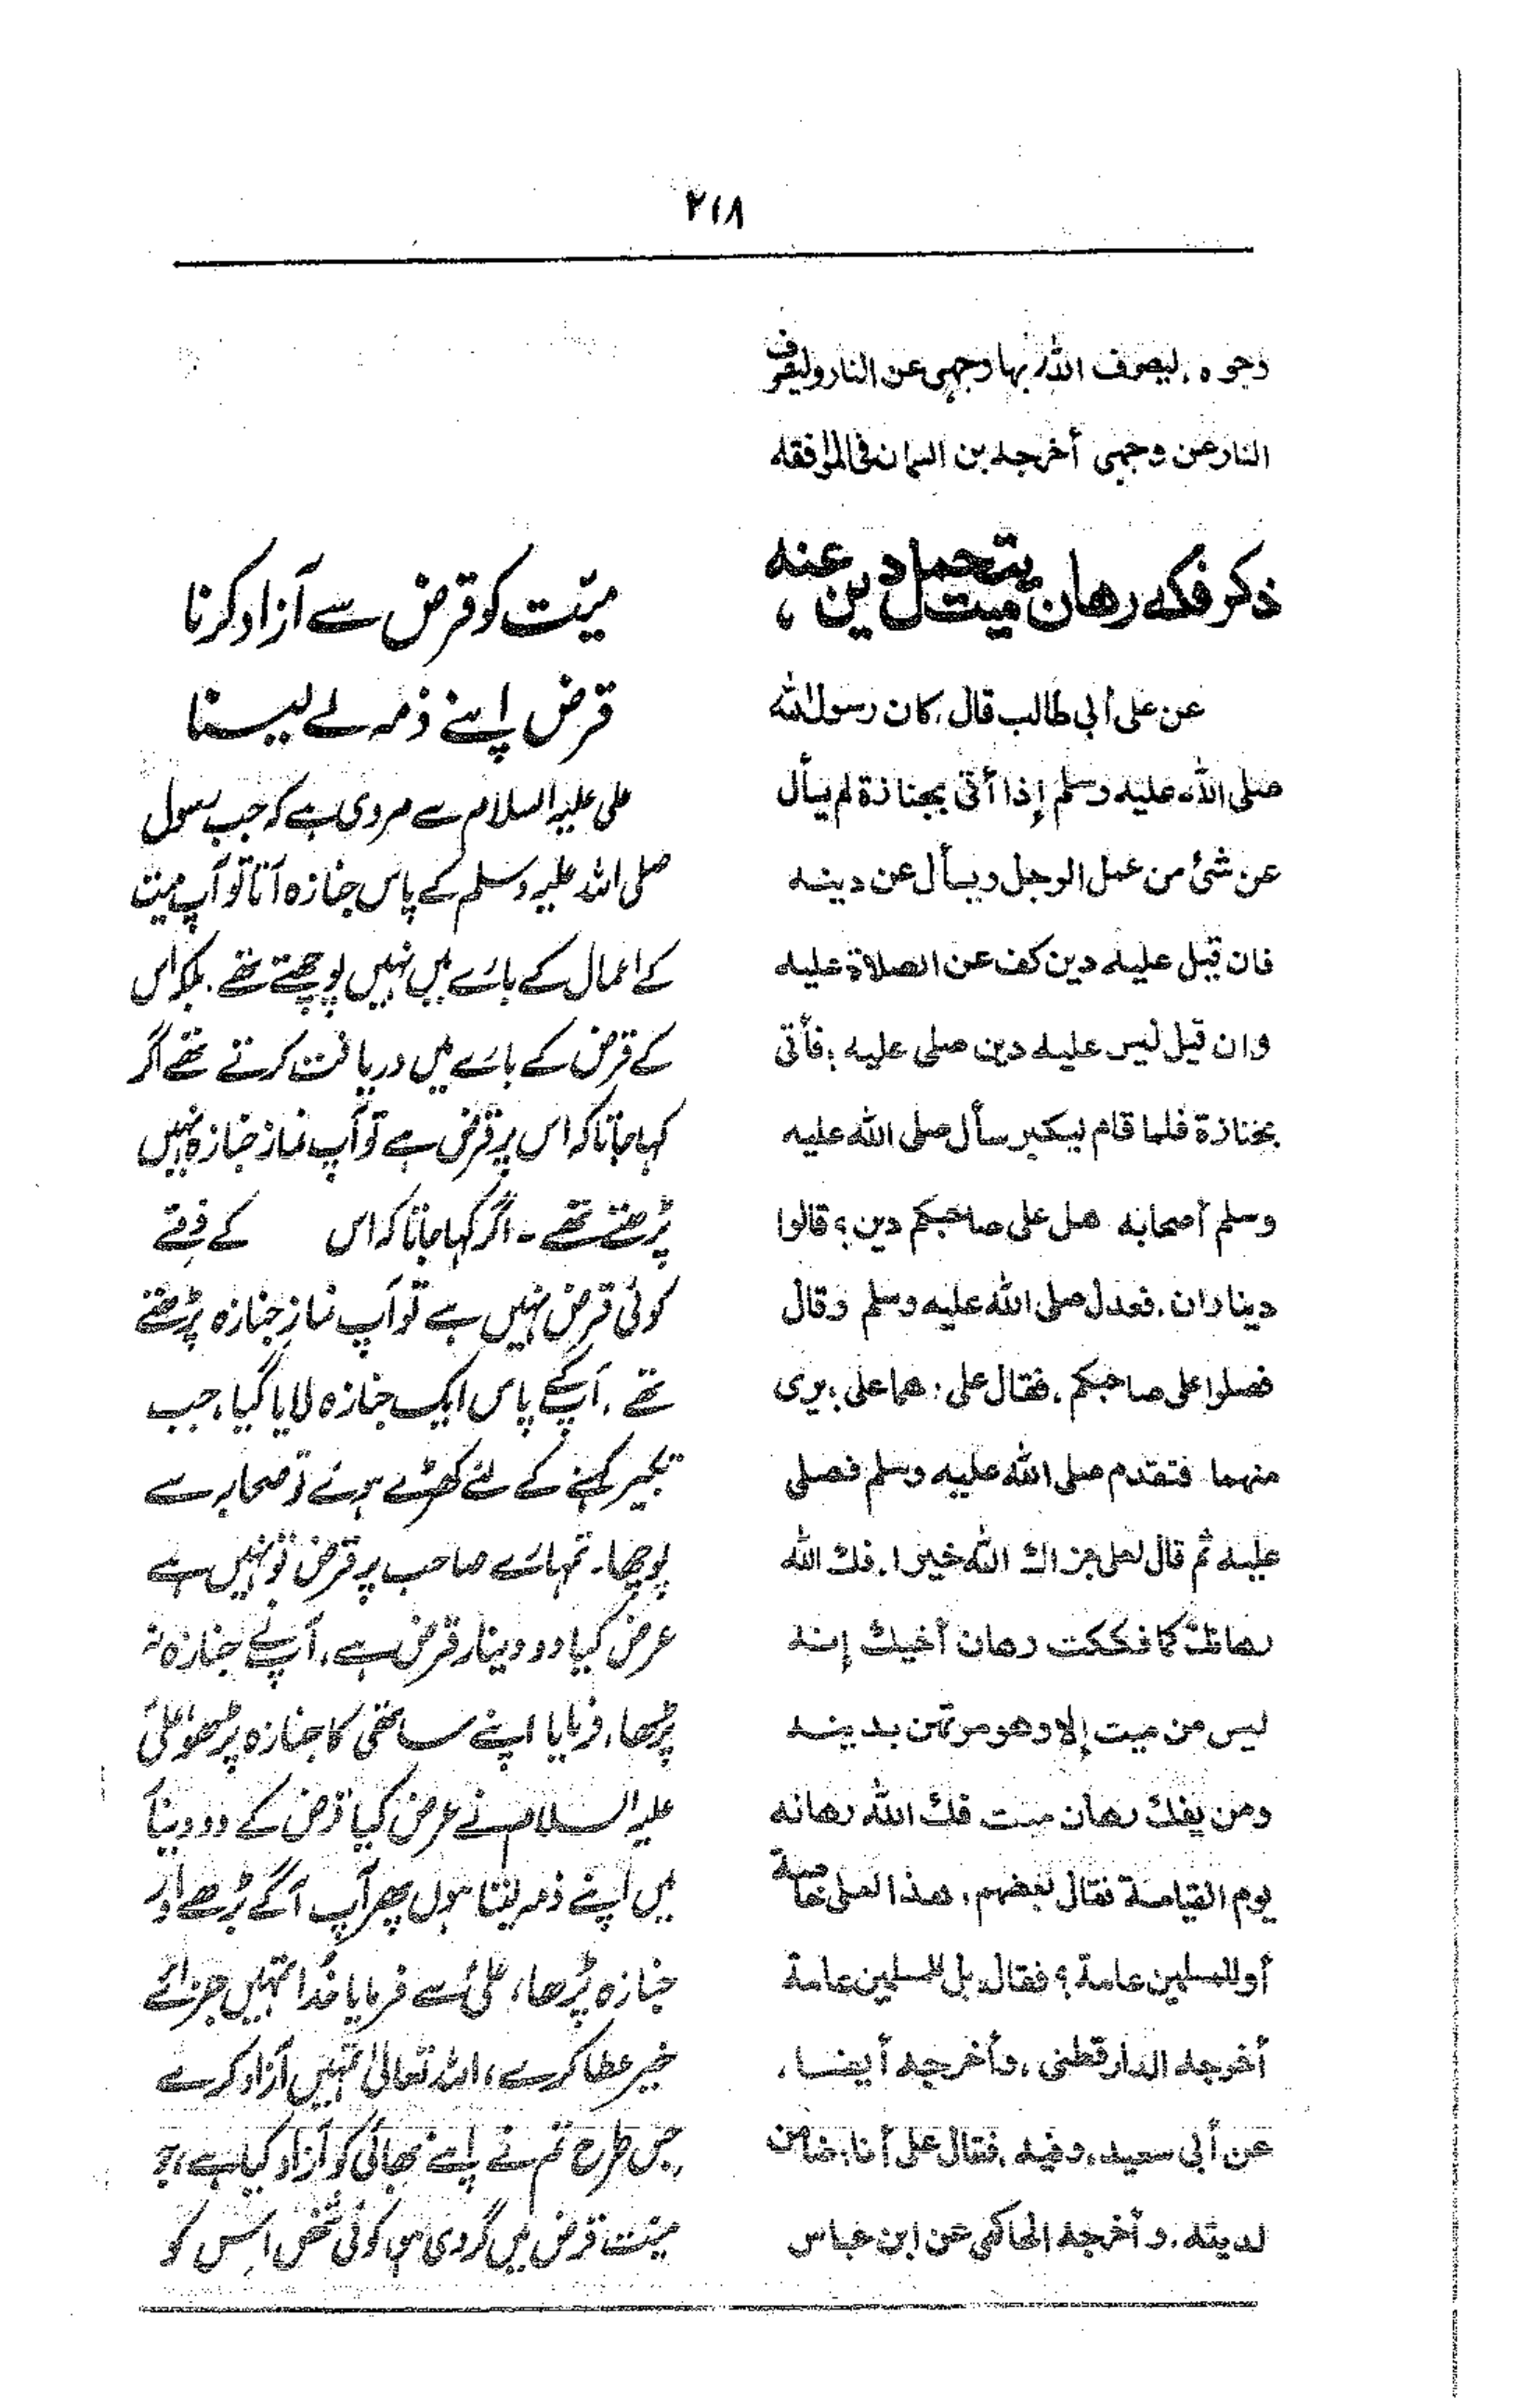 ۲۱۸
وجوه، ليصرف الله بها وجهى عن النار وليصرف
النار عن وجهى أخرجه بن السمان فى الموافقه
ذكر فكه رهان ميت بتحمل دين عنه،
عن على أبى طالب قال، كان رسول الله
صلى الله عليه وسلم إذا أتى بجنازة لم يسأل
عن شئ من عمل الرجل ويسأل عن دينه
فان قيل عليه دين كف عن الصلاة عليه
وان قيل ليس عليه دين صلى عليه، فأتى
بجنازة فلما قام ليكبر سأل صلى الله عليه
وسلم أصحابه هل على صاحبكم دين؟ قالوا
ديناران، فعدل صلى الله عليه وسلم وقال
فصلوا على صاحبكم، فقال على: هما على، برى
منهما فتقدم صلى الله عليه وسلم فصلى
عليه ثم قال لعلى جزاك الله خيرا، فك الله
رهانك كما فككت رهان أخيك إنه
ليس من ميت إلا وهو مرتهن بدينه
ومن يفك رهان ميت فك الله رهانه
يوم القيامة فقال بعضهم، هذا لعلى خاصة
أو للمسلمين عامة؟ فقال بل للمسلمين عامة
أخرجه الدارقطنى، وأخرجه أيضا،
عن أبى سعيد، وفيه، فقال على أنا ضامن
لدينه، وأخرجه الحاكمى عن ابن عباس
میّت کو قرض سے آزاد کرنا
قرض اپنے ذمہ لے لینا
علی علیہ السلام سے مروی ہے کہ جب رسول
صلی اللہ علیہ وسلم کے پاس جنازہ آتا تو آپ میت
کے اعمال کے بارے میں نہیں پوچھتے تھے۔ بلکہ اس
کے قرض کے بارے میں دریافت کرتے تھے اگر
کہا جاتا کہ اس پر قرض ہے تو آپ نماز جنازہ نہیں
پڑھتے تھے۔ اگر کہا جاتا کہ اس کے ذمّے
کوئی قرض نہیں ہے تو آپ نمازِ جنازہ پڑھتے
تھے، آپکے پاس ایک جنازہ لایا گیا، جب
تکبیر کہنے کے لئے کھڑے ہوئے تو صحابہ سے
پوچھا۔ تمہارے صاحب پر قرض تو نہیں ہے
عرض کیا دو دینار قرض ہے، آپنے جنازہ نہ
پڑھا، فرمایا اپنے ساتھی کا جنازہ پڑھو علی
علیہ السلام نے عرض کیا قرض کے دو دینار
میں اپنے ذمہ لیتا ہوں پھر آپ آگے بڑھے اور
جنازہ پڑھا، علی سے فرمایا خُدا تمہیں جزائے
خیر عطا کرے، اللہ تعالیٰ تمہیں آزاد کرے
جس طرح تم نے اپنے بھائی کو آزاد کیا ہے، جو
میّت قرض میں گروی ہو کوئی شخص اس کو